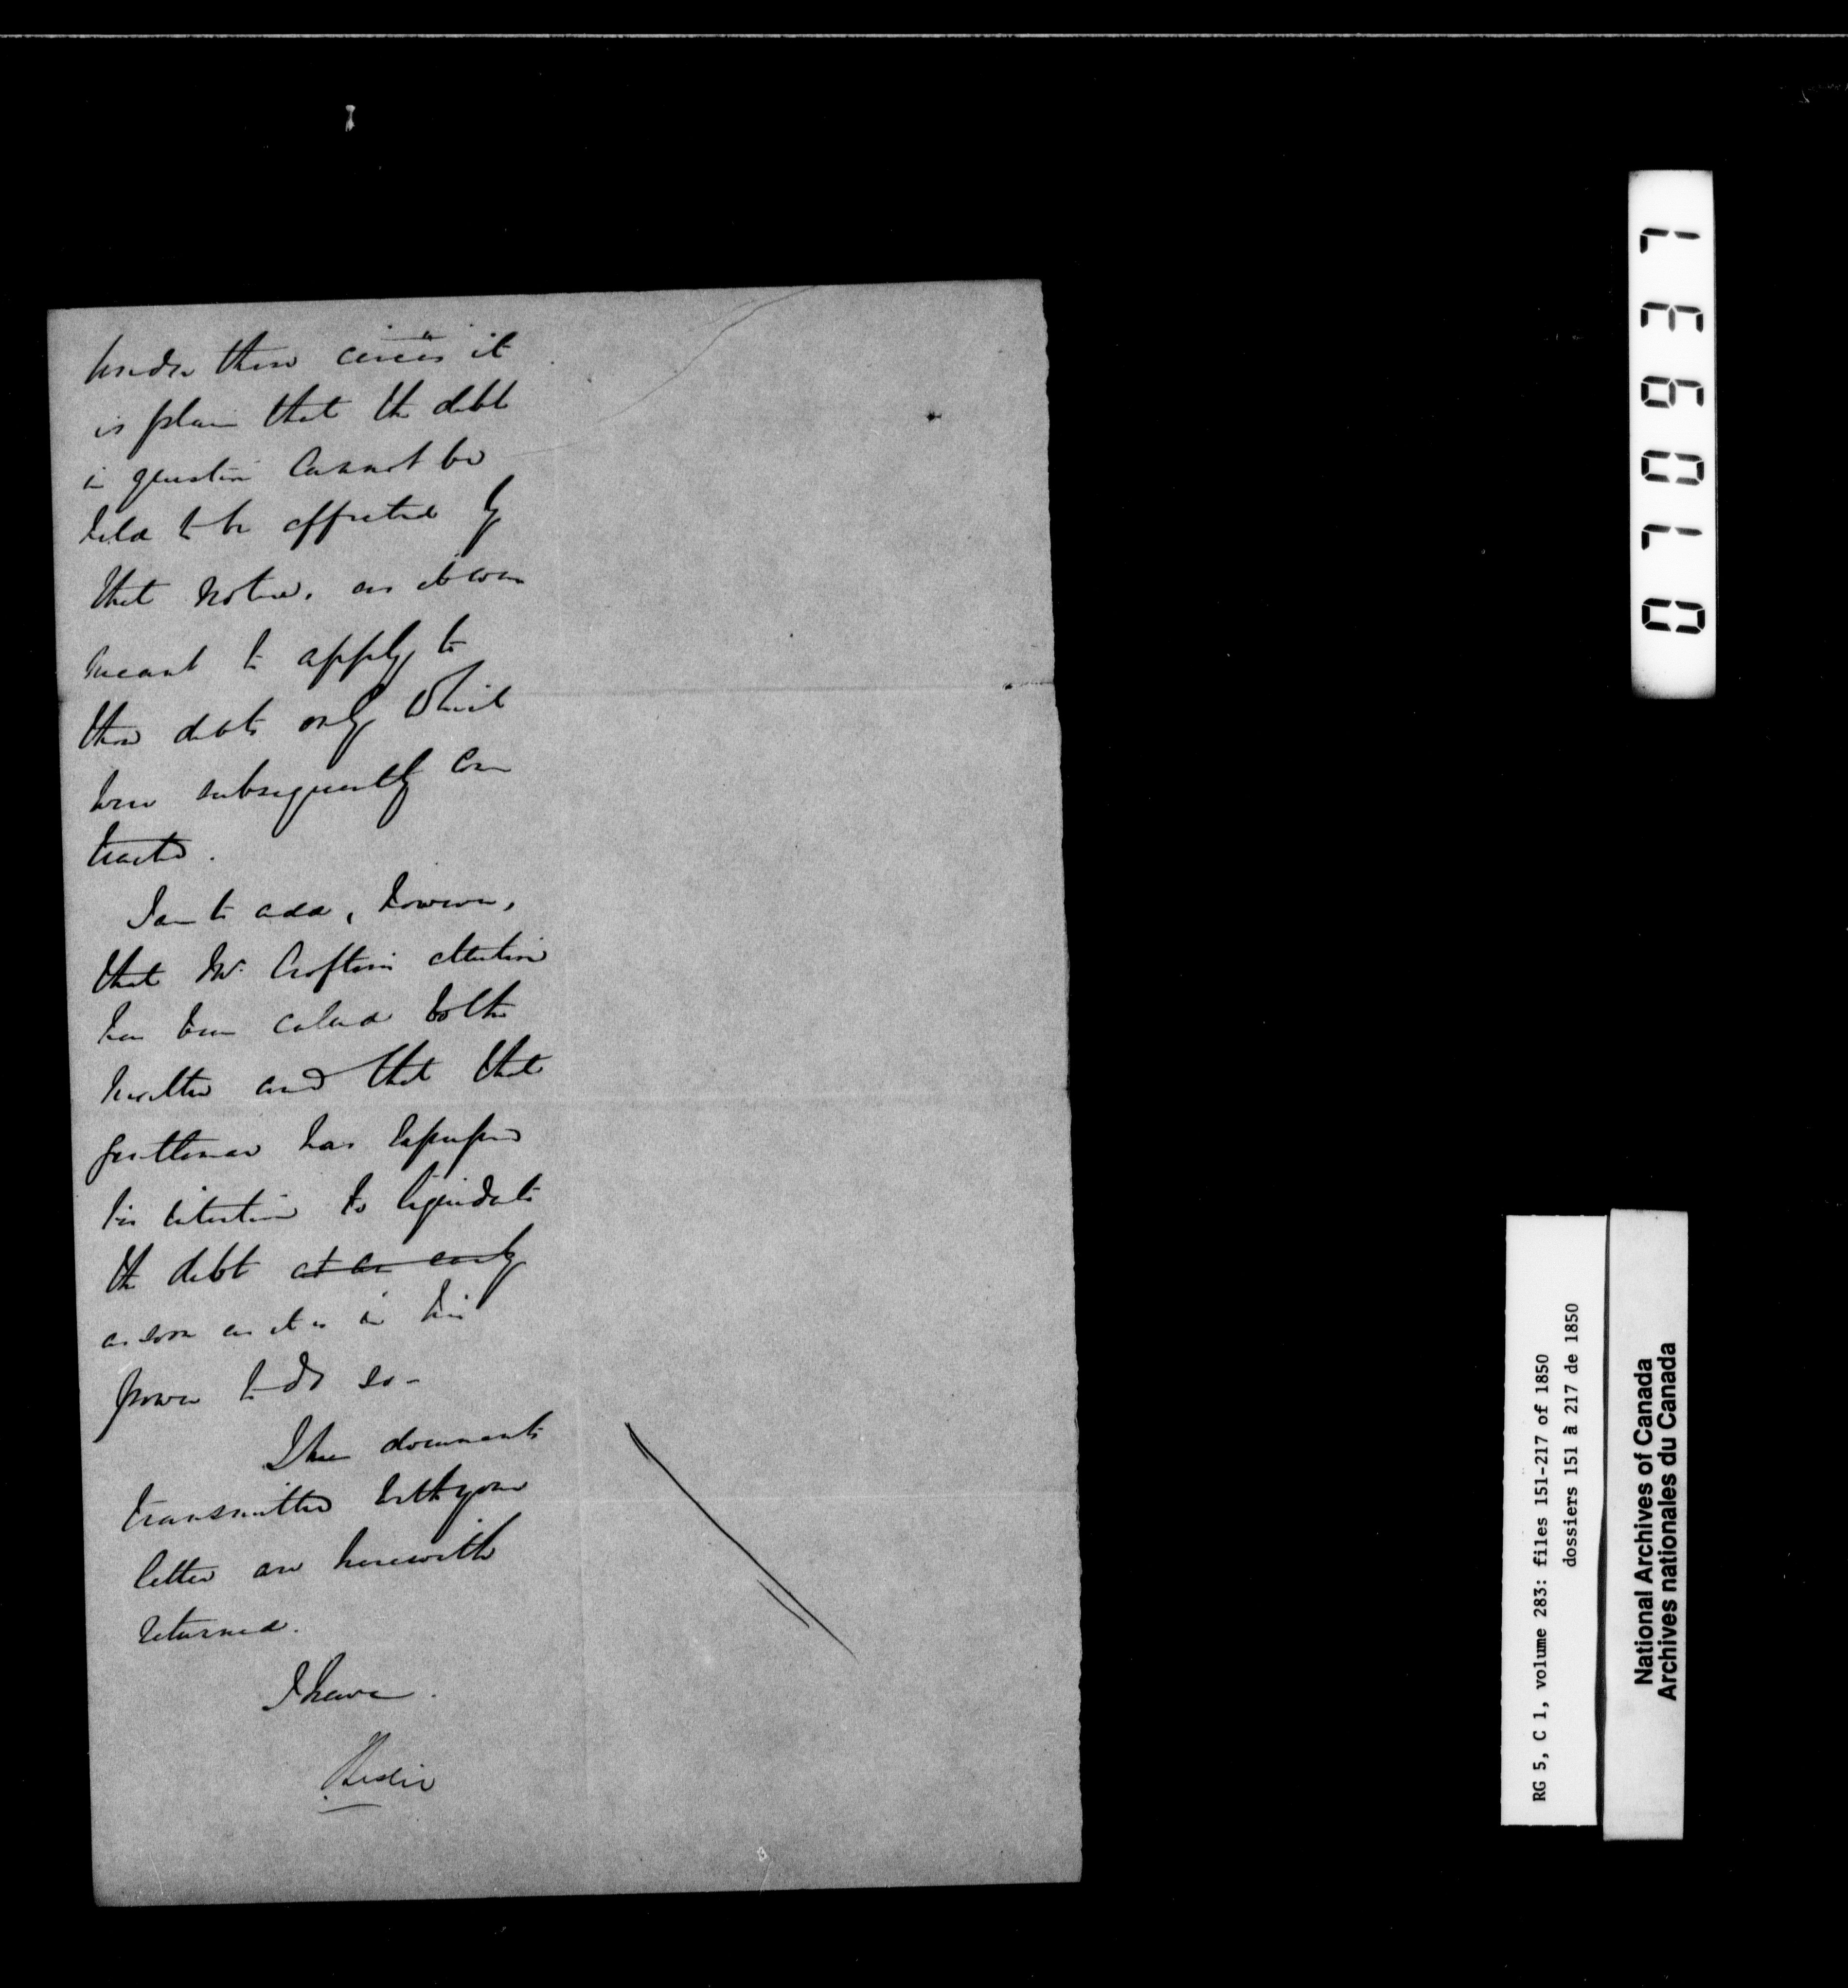 Under these circes it
is plain that the debt
in question cannot be
held to be affected by
that notice, as it was
meant to apply to
those debts only which
were subsequently con
tracted.
I am to add, however,
that Mr. Crofton's attention
has been called to the
matter and that that
gentleman has expressed
his intention to liquidate
the debt at an early
as soon as it is in his
power to do so -
The documents
transmitted with your
letter are herewith
returned.
I have
Leslie
017
0106937
RG 5, C 1, volume 283: files 151-217 of 1850
dossiers 151 à 217 de 1850
National Archives of Canada
Archives nationales du Canada